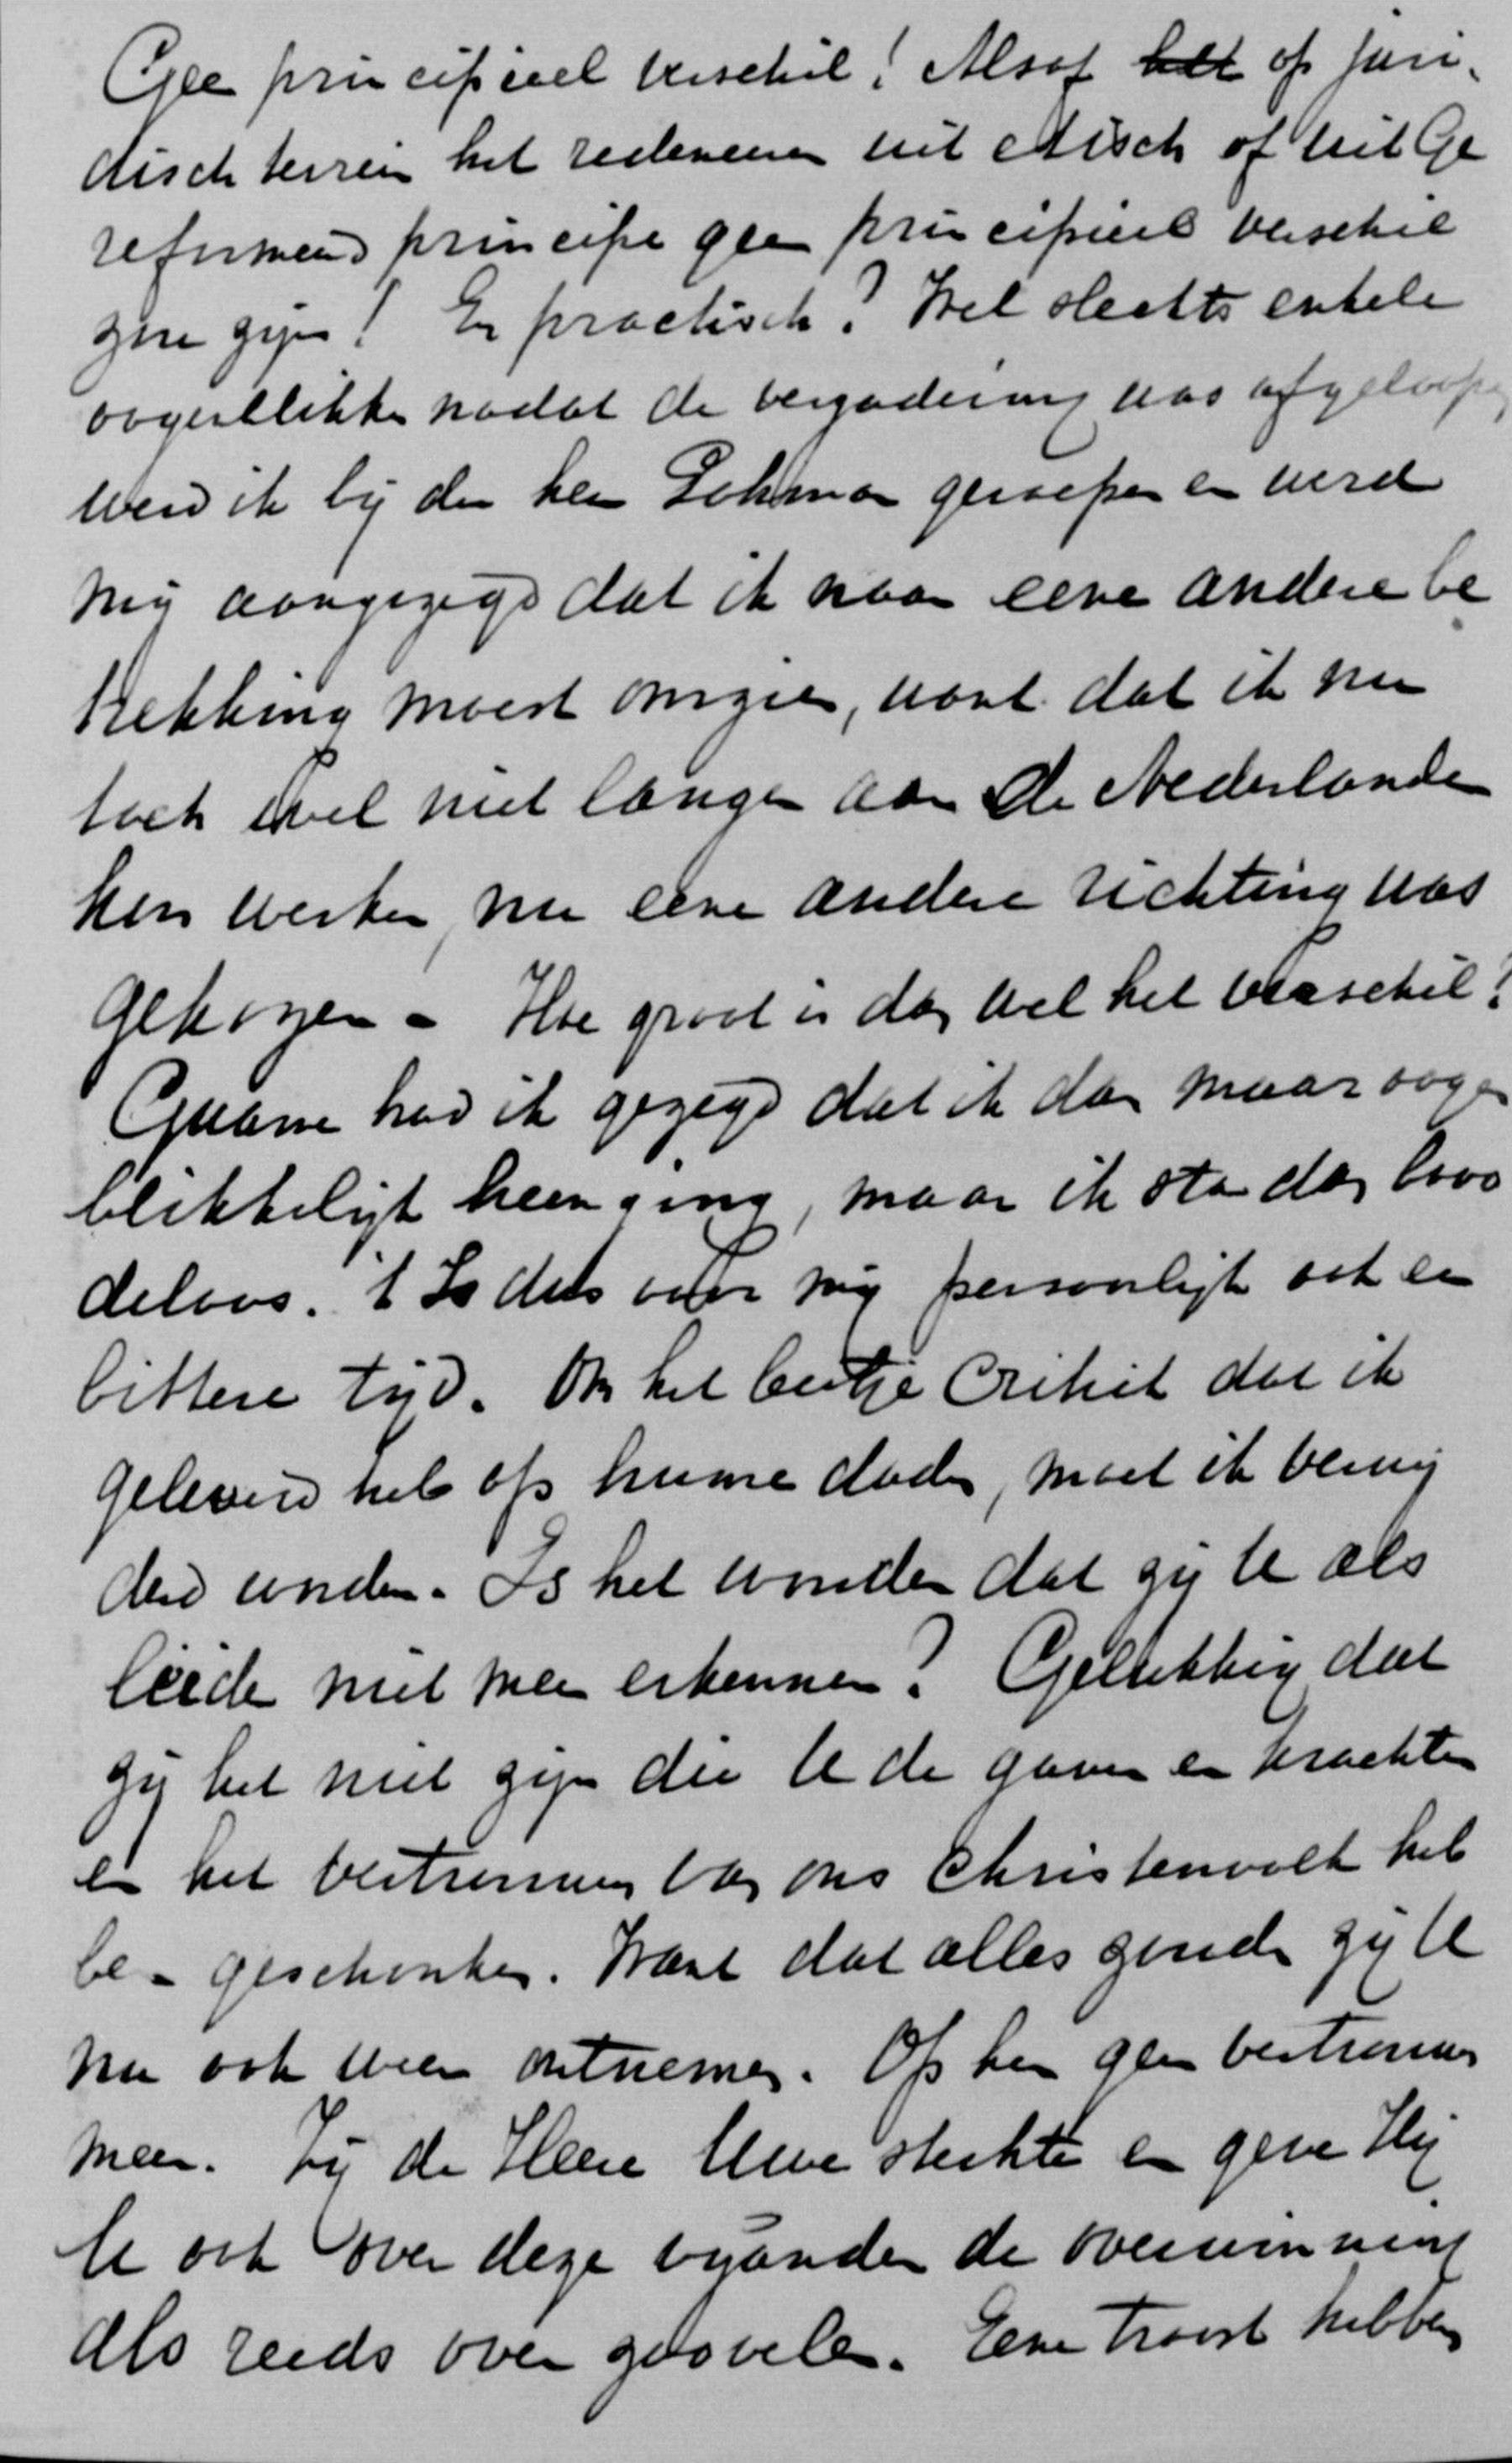 Geen principieel verschil! Alsof op juri-
disch terrein het redeneren uit ethisch of uit Ge
reformeerd principe geen principieel verschil
zou zijn! En practisch? Wel slechts enkele
oogenblikken nadat de vergadering was afgeloopen
werd ik bij den heer Lohman geroepen en werd
mij aangezegd dat ik naar eene andere be
trekking moest omzien, want dat ik nu
toch wel niet langer aan de Nederlander
kon werken, nu eene andere richting was
gekozen. Hoe groot is dan wel het verschil?
Gaarne had ik gezegd dat ik dan maar oogen
blikkelijk heenging, maar ik sta dan broo
deloos. 't Is dus voor mij persoonlijk ook een
bittere tijd. Om het beetje critiek dat ik
geleverd heb op hunne daden, moet ik verwij
derd worden. Is het wonder dat zij U als
leider niet meer erkennen? Gelukkig dat
zij het niet zijn die U de gaven en krachten
en het vertrouwen van ons Christenvolk heb
ben geschonken. Want dat alles zouden zij U
nu ook weer ontnemen. Op hen geen vertrouwen
meer. Zij de Heere Uwe sterkte en geve Hij
U ook over deze vijanden de overwinning
als reeds over zoovelen. Eene troost hebben